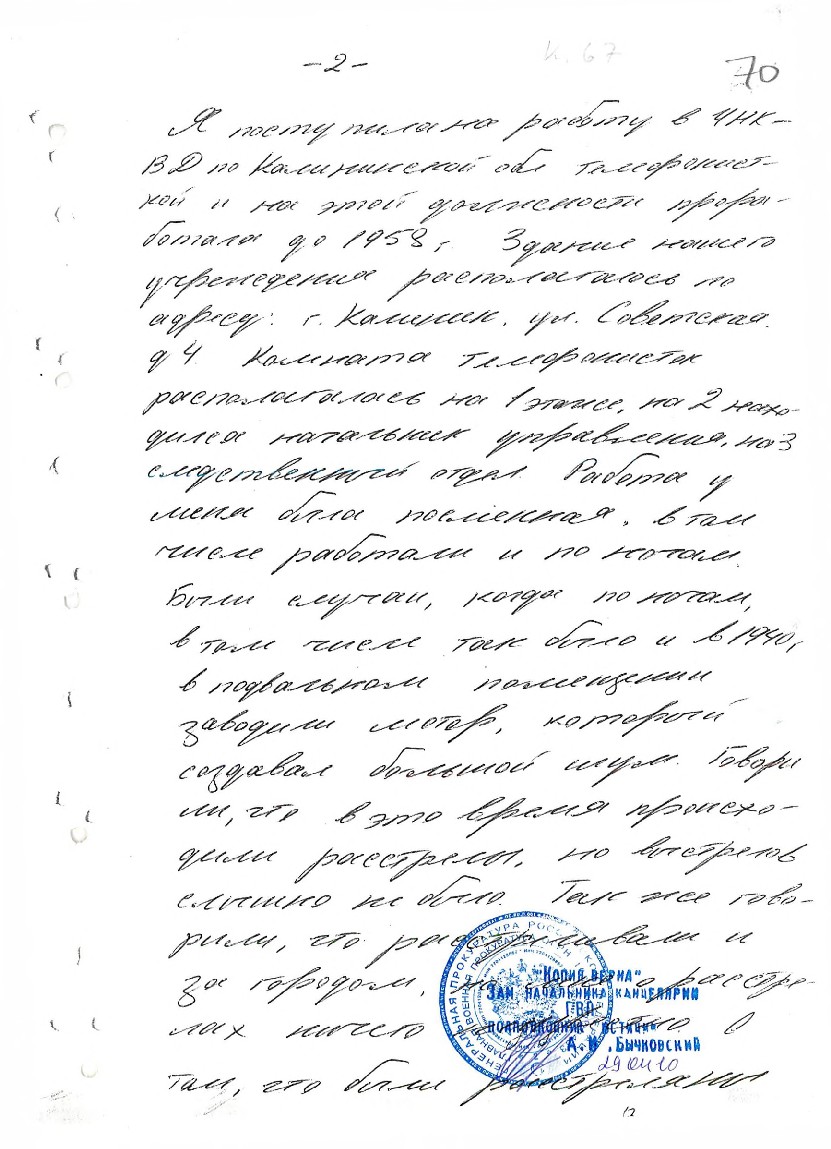 - 2 -
к. 67
70
Я поступила на работу в УНК-
ВД по Калининской обл телефонист-
кой и на этой должности прора-
ботала до 1958 г. Здание нашего
учреждения располагалось по
адресу: г. Калинин, ул. Советская
д 4. Комната телефонисток
располагалась на 1 этаже, на 2 нахо-
дился начальник управления, на 3
следственный отдел. Работа у
меня была посменная, в том
числе работали и по ночам.
Были случаи, когда по ночам,
в том числе так было и в 1940 г,
в подвальном помещении
заводили мотор, который
создавал большой шум. Говори
ли, что в это время происхо-
дили расстрелы, но выстрелов
слышно не было. Так же гово-
рили, что расстреливали и
за городом, о расстре-
лах ничего О
том, что были расстреляны
ГЕНЕРАЛЬНАЯ ПРОКУРАТУРА РОССИЙСКОЙ
ГЛАВНАЯ ВОЕННАЯ ПРОКУРАТУРА
"КОПИЯ ВЕРНА"
ЗАМ. НАЧАЛЬНИКА КАНЦЕЛЯРИИ
ГВП
ПОДПОЛКОВНИК ЮСТИЦИИ
БЫЧКОВСКИЙ
29 04 10